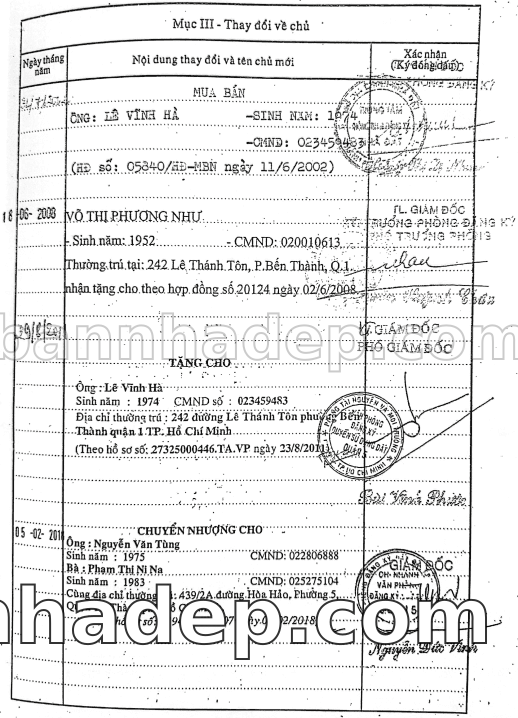 Mục III - Thay đổi về chủ
Ngày tháng năm
Nội dung thay đổi và tên chủ mới
Xác nhận
(Ký đóng dấu)
MUA BÁN
ÔNG: LÊ VĨNH HÀ -SINH NĂM: 1974
-CMND: 023459483
(HĐ số: 05840/HĐ-MBN ngày 11/6/2002)
TRUNG TÂM
NHÀ ĐẤT
18 -06- 2008 VÕ THỊ PHƯƠNG NHƯ
TL. GIÁM ĐỐC
TRƯỞNG PHÒNG ĐĂNG KÝ
PHÓ TRƯỞNG PHÒNG
- Sinh năm: 1952 - CMND: 020010613
Thường trú tại: 242 Lê Thánh Tôn, P.Bến Thành, Q.1
nhận tặng cho theo hợp đồng số 20124 ngày 02/6/2008
GIÁM ĐỐC
PHÓ GIÁM ĐỐC
bannhadep.com
TẶNG CHO
Ông : Lê Vĩnh Hà
Sinh năm : 1974 CMND số : 023459483
Địa chỉ thường trú : 242 đường Lê Thánh Tôn phường Bến
Thành quận 1 TP. Hồ Chí Minh
(Theo hồ sơ số: 27325000446.TA.VP ngày 23/8/2011)
TÀI NGUYÊN VÀ MÔI TRƯỜNG
VĂN PHÒNG
ĐĂNG KÝ
QUYỀN SỬ DỤNG ĐẤT
QUẬN
TP.HỒ CHÍ MINH
05 -02- 2018 CHUYỂN NHƯỢNG CHO
Ông : Nguyễn Văn Tùng
Sinh năm : 1975 CMND: 022806888
Bà : Phạm Thị Ni Na
Sinh năm : 1983 CMND: 025275104
Cùng địa chỉ thường trú: 439/2A đường Hòa Hảo, Phường 5,
GIÁM ĐỐC
CHI NHÁNH
VĂN PHÒNG
ĐĂNG KÝ
nhadep.com
Nguyễn Đức Vinh